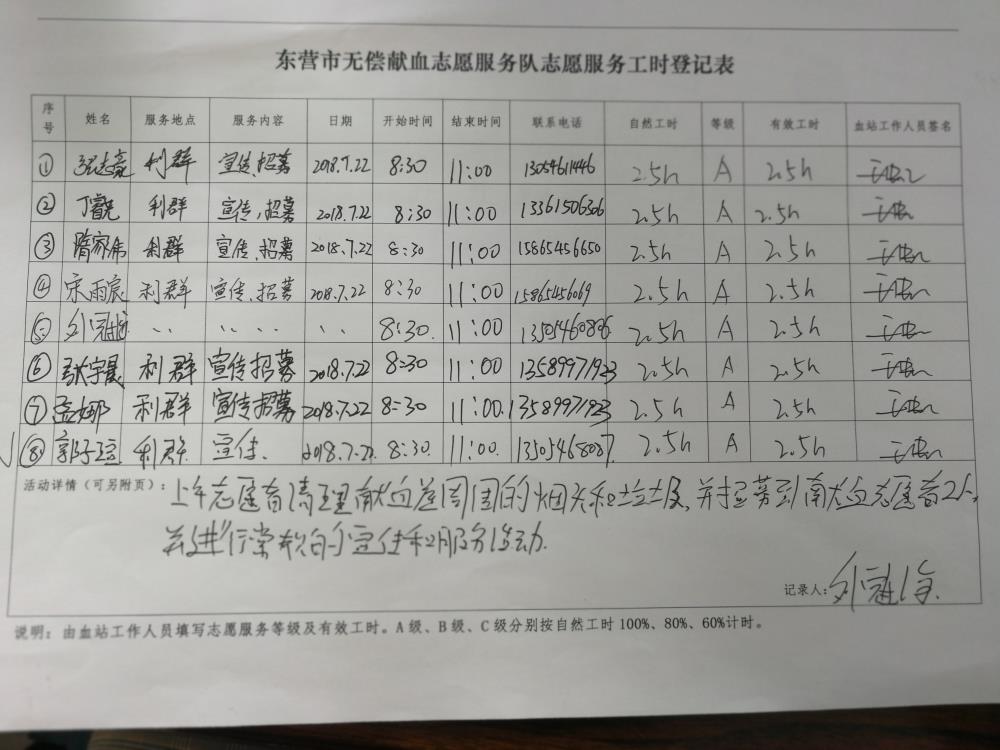 东营市无偿献血志愿服务队志愿服务工时登记表
序号 姓名 服务地点 服务内容 日期 开始时间 结束时间 联系电话 自然工时 等级 有效工时 血站工作人员签名
① 利群 宣传、招募 2018.7.22 8:30 11:00 13054611446 2.5h A 2.5h
② 丁睿 利群 宣传,招募 2018.7.22 8:30 11:00 13361506306 2.5h A 2.5h
③ 隋家伟 利群 宣传、招募 2018.7.22 8:30 11:00 15865456650 2.5h A 2.5h
④ 宋雨宸 利群 宣传、招募 2018.7.22 8:30 11:00 15865456069 2.5h A 2.5h
⑤ 8:30. 11:00 13505460806 2.5h A 2.5h
⑥ 张宇晨 利群 宣传招募 2018.7.22 8:30 11:00 13589971923 2.5h A 2.5h
⑦ 孟娜 利群 宣传招募 2018.7.22 8:30 11:00. 13589971923 2.5h A 2.5h
⑧ 利群. 宣传. 2018.7.22. 8:30. 11:00. 13505468087 2.5h A 2.5h
活动详情(可另附页): 上午志愿者清理献血屋周围的烟头和垃圾,并招募到献血志愿者2人,
并进行常规的宣传和服务活动.
记录人:
说明: 由血站工作人员填写志愿服务等级及有效工时。A级、B级、C级分别按自然工时100%、80%、60%计时。